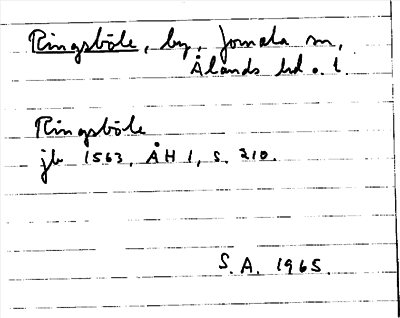 Ringsböle, by, Jomala sn,
Ålands hd o. l.
Ringsböle
jb 1563, ÅH 1, s. 210.
S.A. 1965.